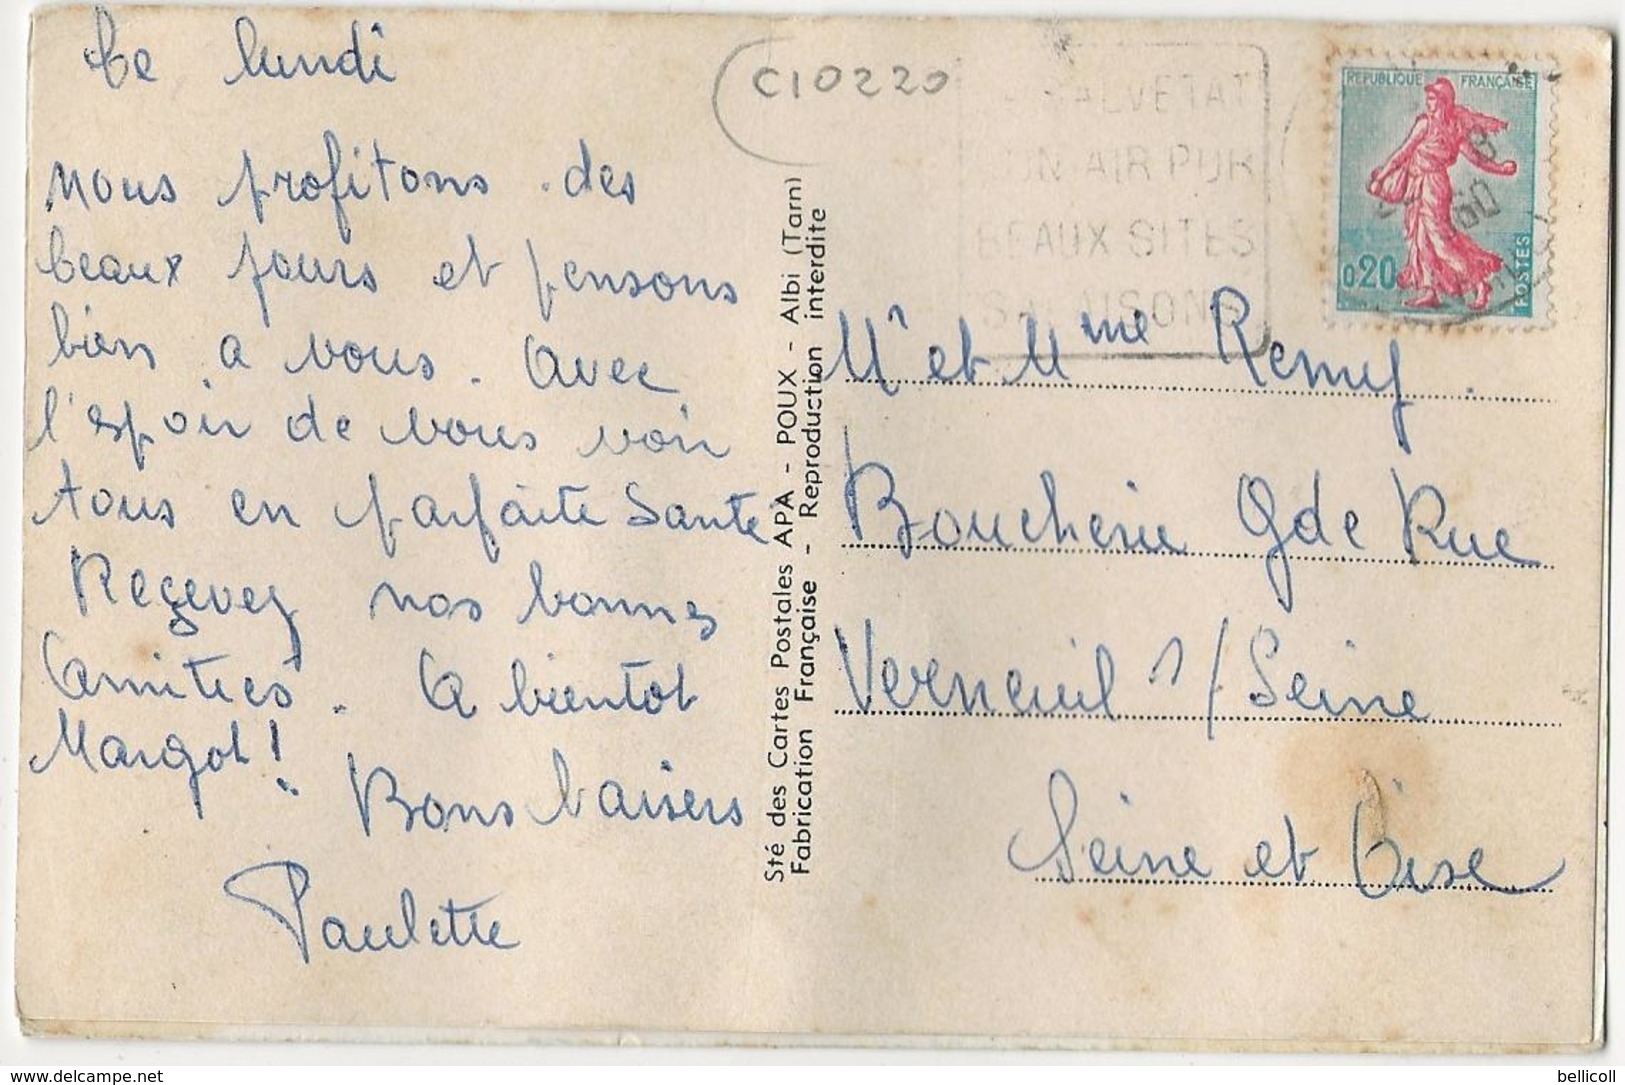 Ce lundi
nous profitons des
beaux jours et pensons
bien a vous. Avec
l'espoir de vous voir
tous en parfaite santé
Reçevez nos bonnes
Amitiés. A bientot
Margot!
Bons baisers
Paulette
Sté des Cartes Postales APA - POUX - Albi (Tarn)
Fabrication Française - Reproduction interdite
C10220
SALVETAT
SON AIR PUR
BEAUX SITES
SALAISONS
REPUBLIQUE FRANÇAISE
0,20
POSTES
60
Mr et Mme Remy
Boucherie Gde Rue
Verneuil s/Seine
Seine et Oise
delcampe.net
bellicoll